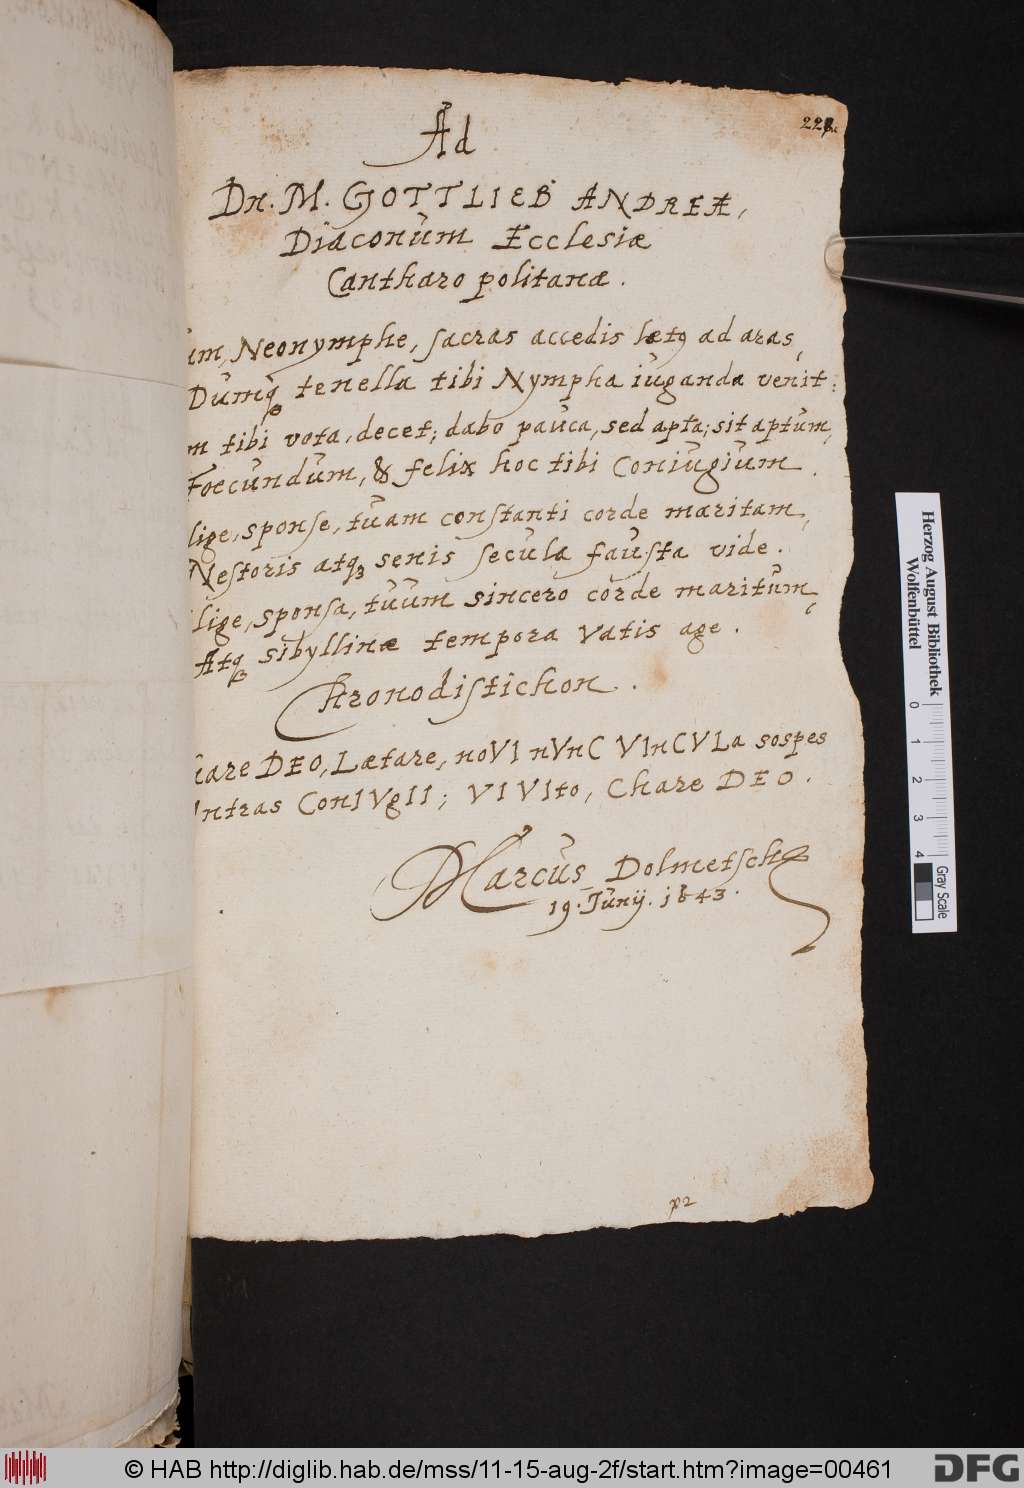 Ad
Dn. M. GOTTLIEB ANDREÆ,
Diaconum Ecclesiæ
Cantharopolitanæ.
um, Neonymphe, sacras accedis lætq ad aras,
Dumq; tenella tibi Nympha iuganda venit:
tibi vota, decet; dabo pauca, sed apta; sit aptum,
Foecundum, & felix hoc tibi Coniugium.
lige, sponse, tuam constanti corde maritam,
Nestoris atq; senis secula fausta vide.
lige, sponsa, tuum sincero corde maritum,
Atq; sibyllinæ tempora Vatis age.
Chronodistichon.
hare DEO, Lætare, noVI nVnC VInCVLa sospes
Intras ConIVgII; VIVIto, Chare DEO.
Marcus Dolmetsch
19. Junij. 1643.
Herzog August Bibliothek
Wolfenbüttel
0 1 2 3 4
Gray Scale
© HAB http://diglib.hab.de/mss/11-15-aug-2f/start.htm?image=00461
DFG